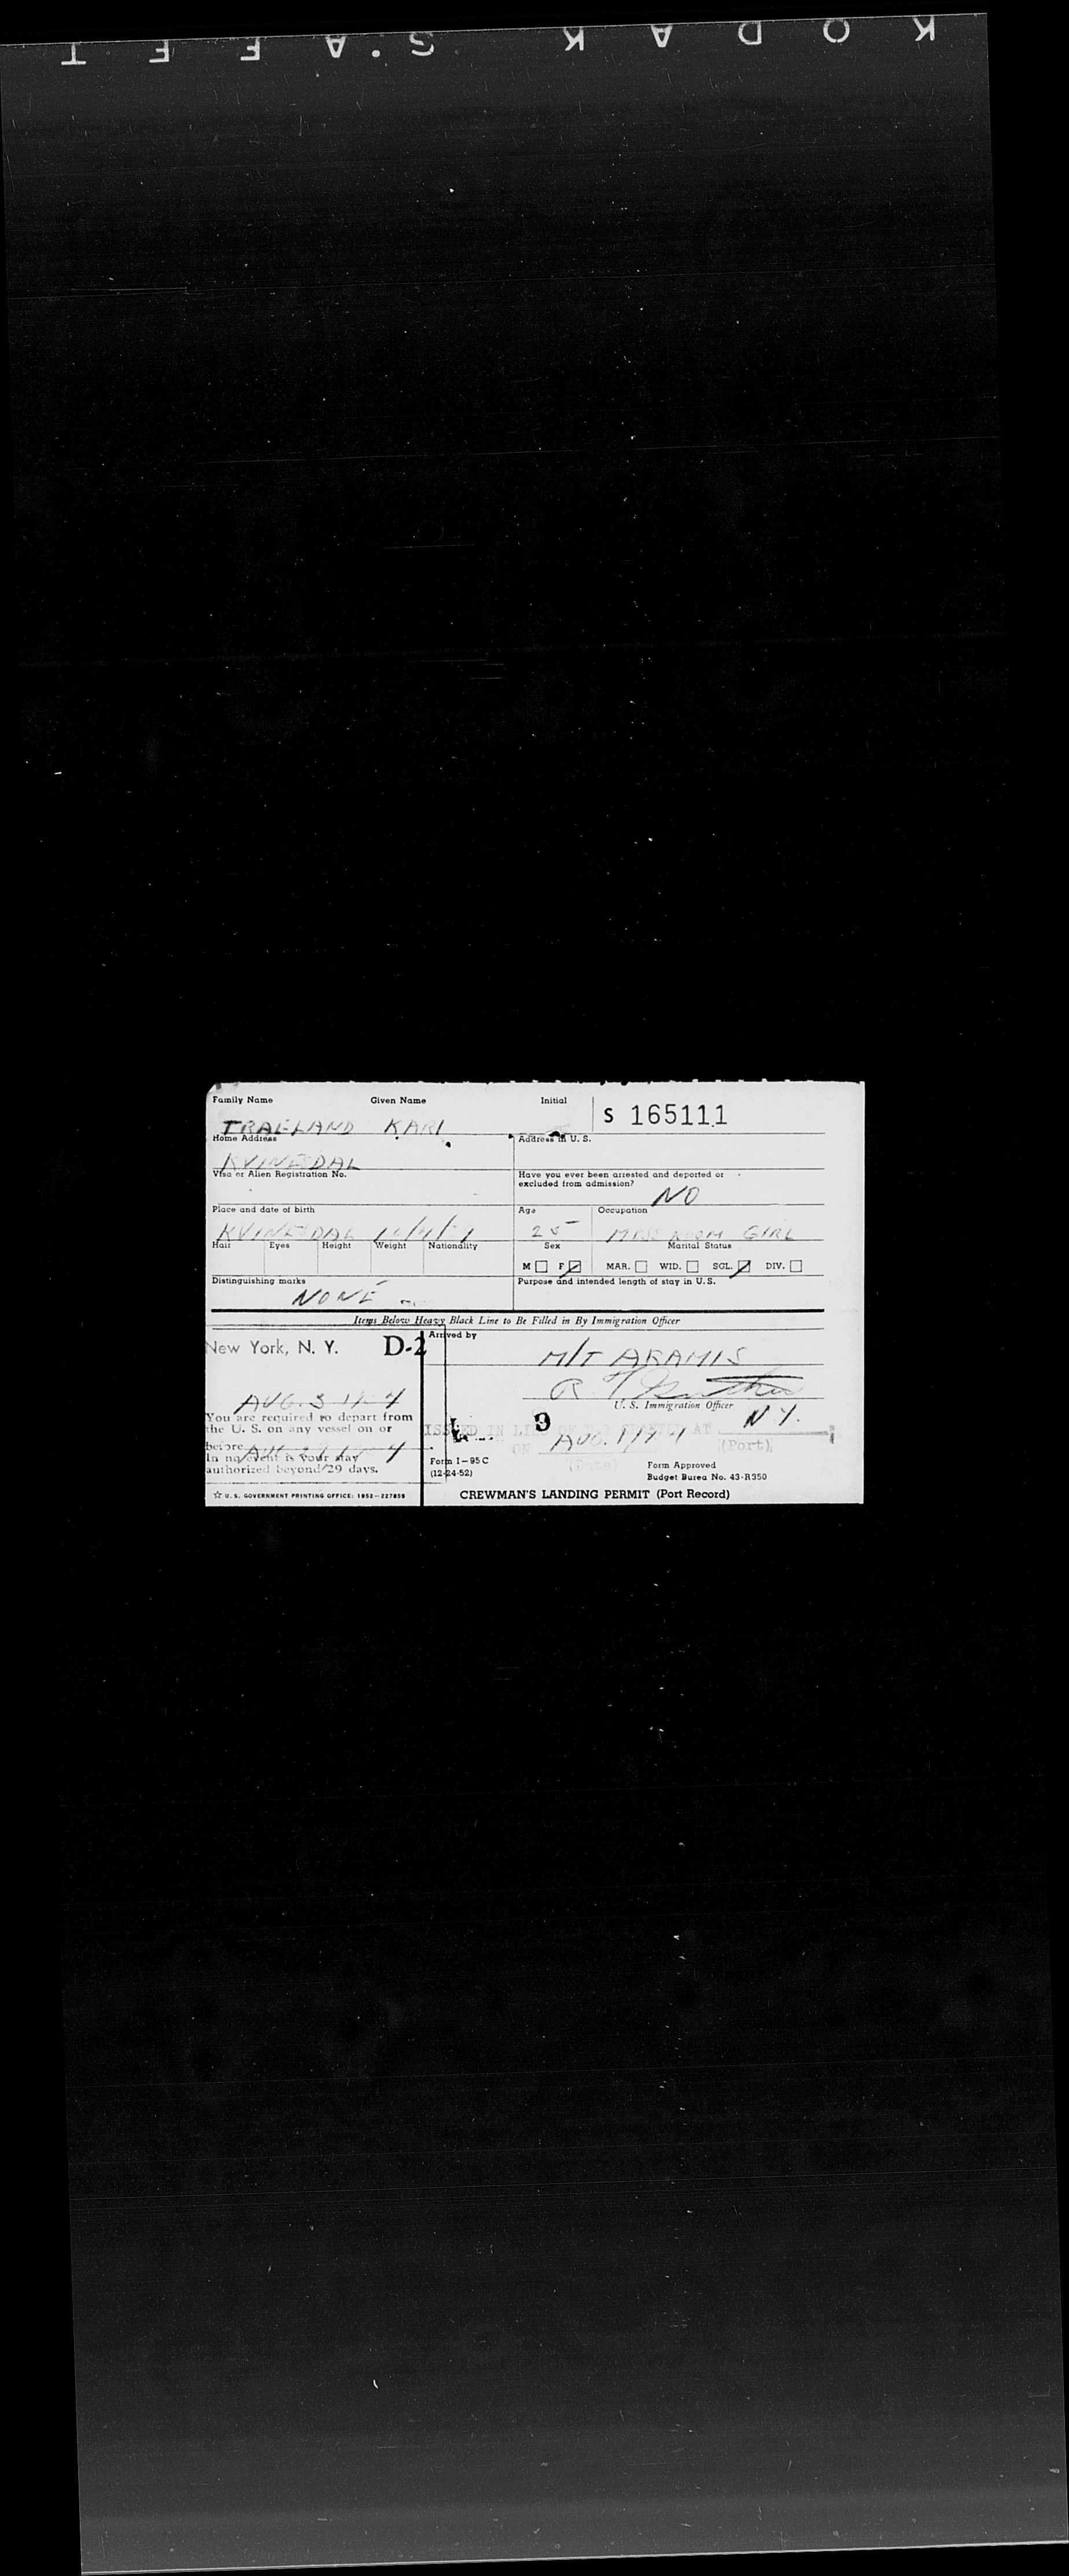 KODAK S.AFET
Family Name Given Name Initial
S 165111
TRAELAND KARI
Home Address Address in U. S.
KVINESDAL
Visa or Alien Registration No. Have you ever been arrested and deported or
excluded from admission?
NO
Place and date of birth Age Occupation
KVINESDAL 25 MESS ROOM GIRL
Hair Eyes Height Weight Nationality Sex Marital Status
M F MAR. WID. SGL. DIV.
Distinguishing marks Purpose and intended length of stay in U. S.
NONE
Items Below Heavy Black Line to Be Filled in By Immigration Officer
New York, N. Y. D-2 Arrived by
M/T ARAMIS
AUG. 3
U. S. Immigration Officer
You are required to depart from
the U. S. on any vessel on or
before
In no event is your stay
authorized beyond 29 days.
9 N.Y.
ISSUED IN AT
ON AUG. (Date) (Port)
Form I-95 C
(12-24-52)
Form Approved
Budget Bureau No. 43-R350
☆ U. S. GOVERNMENT PRINTING OFFICE: 1952-227859
CREWMAN'S LANDING PERMIT (Port Record)